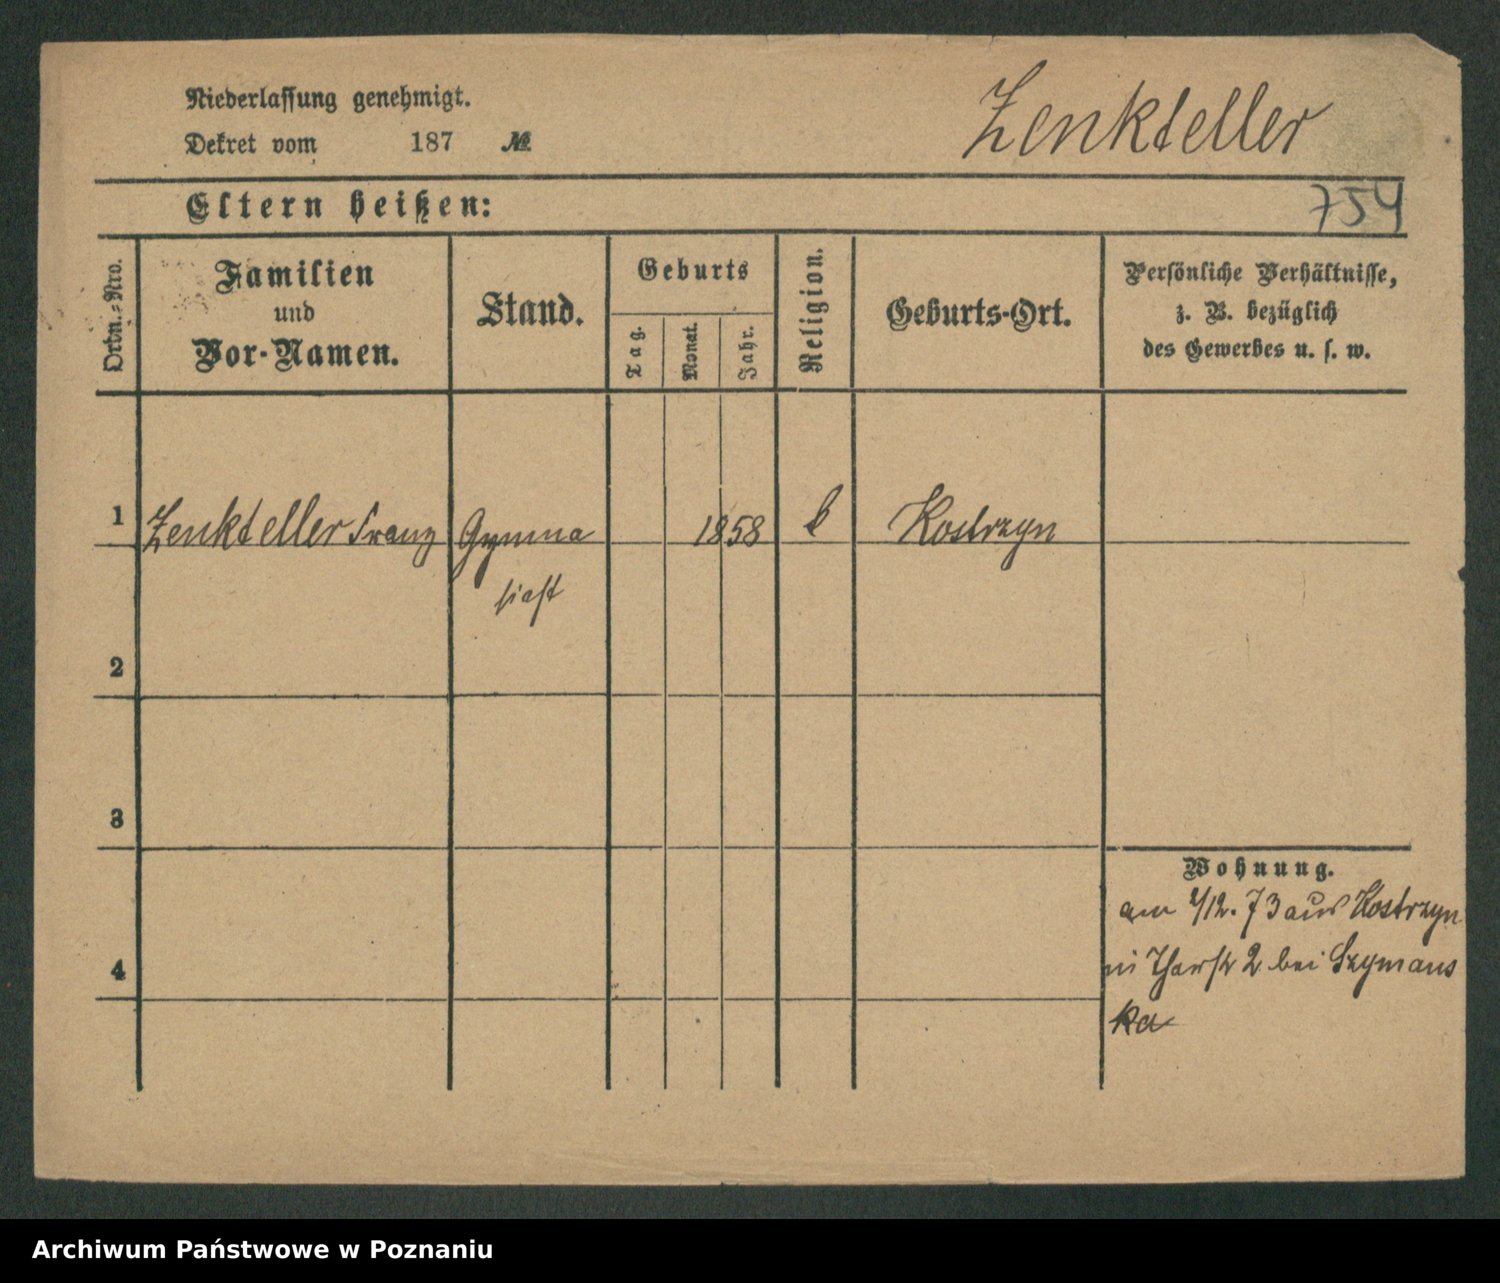 Niederlassung genehmigt.
Zenkteller
Dekret vom 187 №
754
Eltern heißen:
Ordn.-Nro.
Familien
und
Vor-Namen.
Stand.
Geburts
Tag.
Monat.
Jahr.
Religion.
Geburts-Ort.
Persönliche Verhältnisse,
z. B. bezüglich
des Gewerbes u. s. w.
1 Zenkteller Franz Gymna 1858 k Kostrzyn
siast
2
3
Wohnung.
am 2/12. 73 aus Kostrzyn
4
in 2 bei Szymans
ka
Archiwum Państwowe w Poznaniu